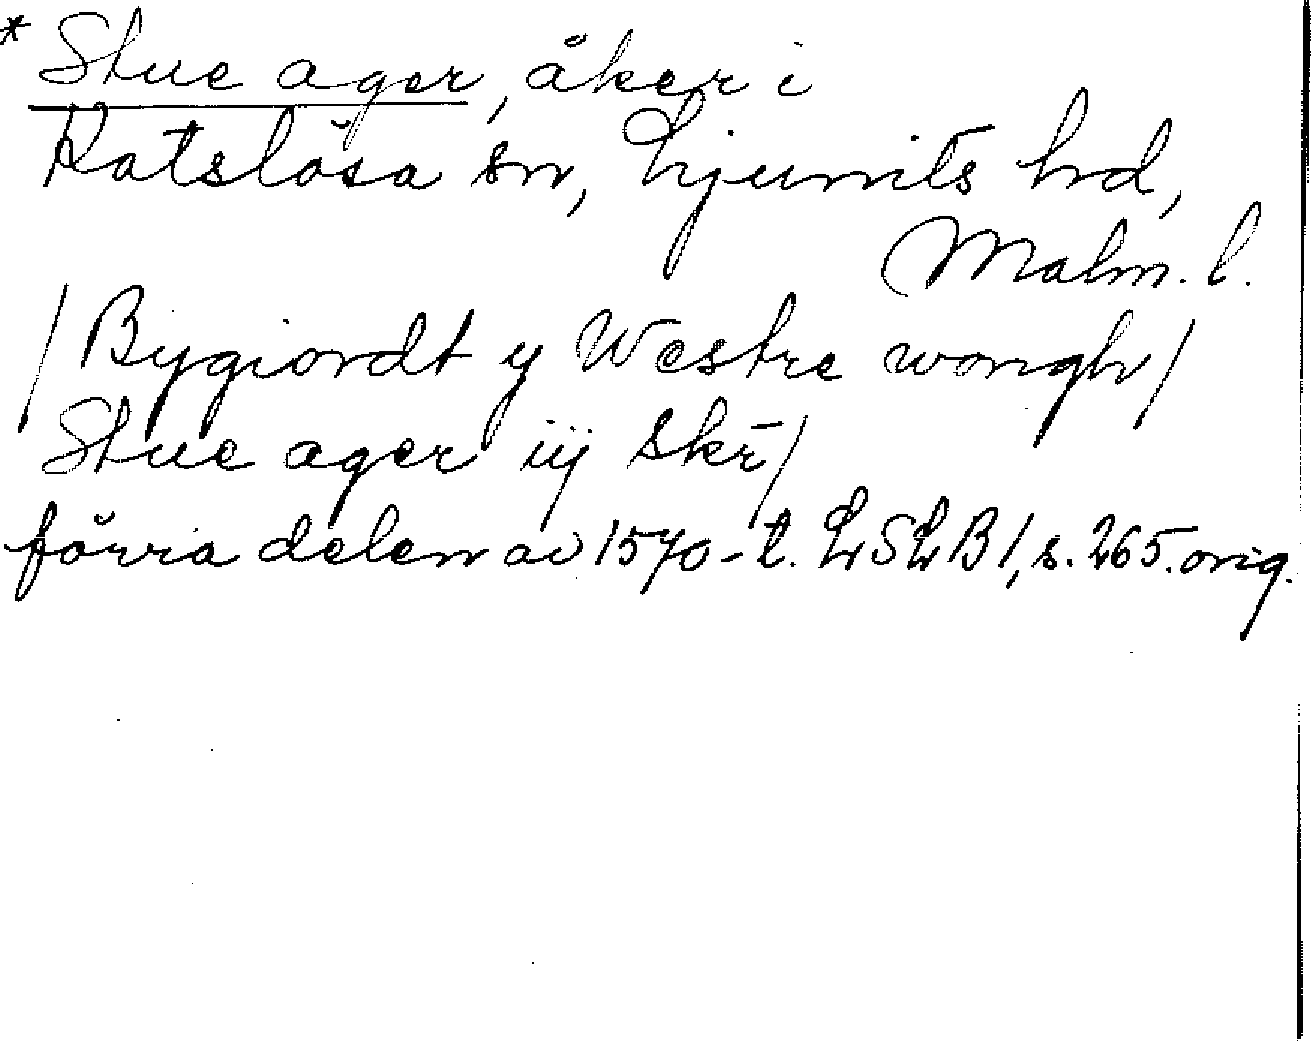 * Stue ager, åker i
Katslösa sn, Ljunits hd,
Malm. l.
/Bygiordt y Westre wongh/
Stue ager iij skr̄/
förra delen av 1570-t. LSLB1, s. 265. orig.